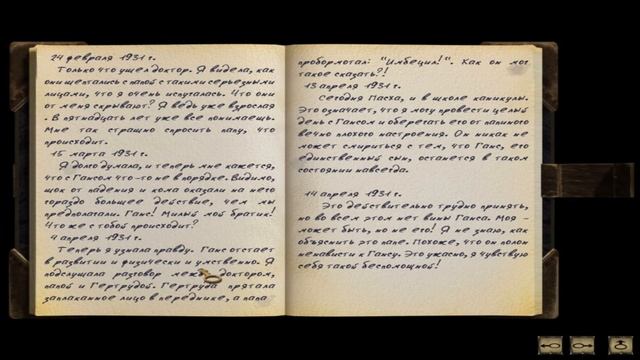 24 февраля 1931 г.
Только что ушел доктор. Я видела, как
они шептались с папой с такими серьезными
лицами, что я очень испугалась. Что они
от меня скрывают? Я ведь уже взрослая
. В пятнадцать лет уже все понимаешь.
Мне так страшно спросить папу, что
происходит.
15 марта 1931 г.
Я долго думала, и теперь мне кажется,
что с Гансом что-то не в порядке. Видимо,
шок от падения и кома оказали на него
гораздо большее действие, чем мы
предполагали. Ганс! Милый мой братик!
Что же с тобой происходит?
4 апреля 1931 г.
Теперь я узнала правду. Ганс отстает
в развитии и физически и умственно. Я
подслушала разговор между доктором,
папой и Гертрудой. Гертруда прятала
заплаканное лицо в переднике, а папа
пробормотал: "Имбецил!". Как он мог
такое сказать?!
13 апреля 1931 г.
Сегодня Пасха, и в школе каникулы.
Это означает, что я могу провести целый
день с Гансом и оберегать его от папиного
вечно плохого настроения. Он никак не
может смириться с тем, что Ганс, его
единственный сын, останется в таком
состоянии навсегда.
14 апреля 1931 г.
Это действительно трудно принять,
но во всем этом нет вины Ганса. Моя -
может быть, но не его! Я не знаю, как
объяснить это папе. Похоже, что он полон
ненависти к Гансу. Это ужасно, я чувствую
себя такой беспомощной!